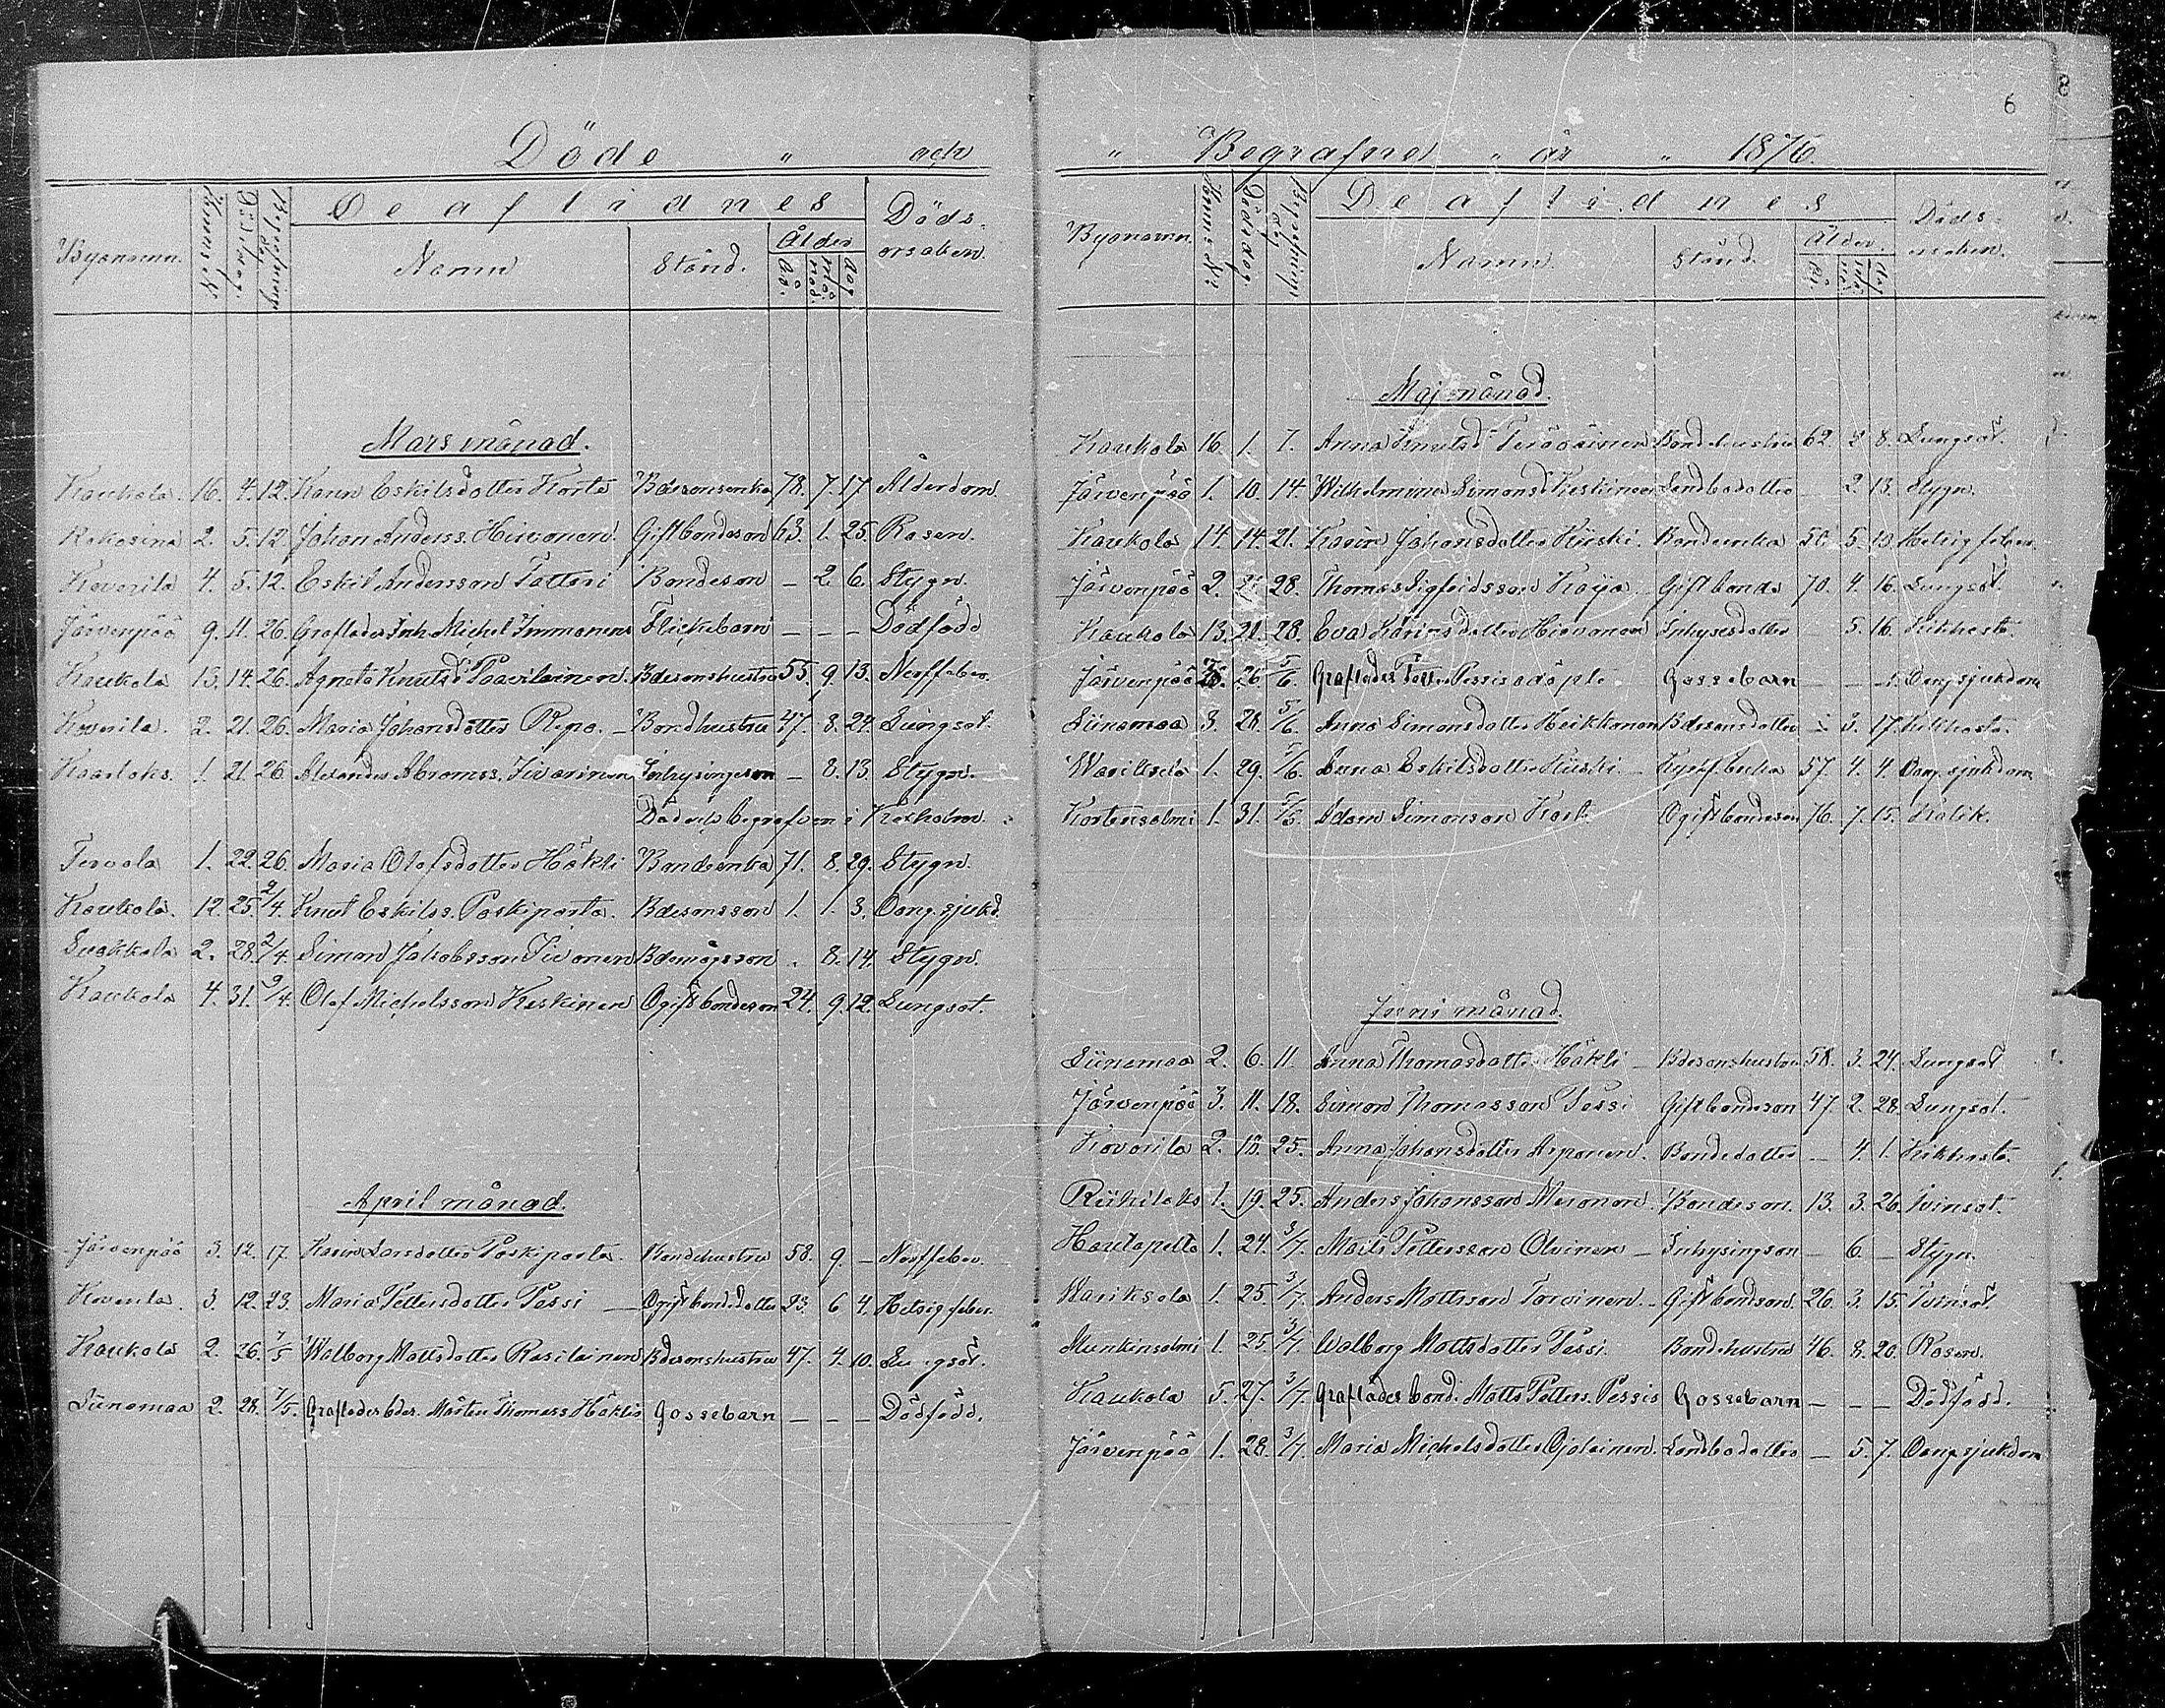 Döde " och
Byanamn. Hemms № Dödsdag. Begrafnings dag De aflidnes Döds-orsaken.
Namn Stånd. Ålder
År. Må-nad. Dag
Mars månad.
Kaukola. 16. 4. 12. Karin Eskilsdotter Korte Bdesonsenka 78. 7. 17. Ålderdom.
Kokosina 2. 5. 12. Johan Anderss. Hirvonen. Gift bondeson 63. 1. 25. Rosen.
Koverila 4. 5. 12. Eskil Andersson Tattari Bondeson — 2. 6. Stygn.
Järvenpää 9. 11. 26. Graflades Inh. Michel Immonens Flickebarn — — — Dödfödd
Kaukola 13. 14. 26. Agneta Knutsd. Paavilainen. Bdesonshustru 55. 9. 13. Nerffeber.
Koverila. 2. 21. 26. Maria Johansdotter Repo. — Bondhustru 47. 8. 24. Lungsot.
Kaarlaks. 1. 21. 26. Alexander Abramss. Sivarinen Inhysingeson — 8. 13. Stygn.
Död och begrafven i Kexholm.
Tervola 1. 22. 26. Maria Olofsdotter Häkli Bondeenka 71. 8. 29. Stygn.
Kaukola. 12. 25. 2/4. Knut Eskilss. Paskiparta. Bdesonsson 1. 1. 3. Oang. sjukd.
Suokkola 2. 28. 2/4. Simon Jakobsson Sivonen Bdemågsson . 8. 14. Stygn.
Kaukola 4. 31. 2/4. Olof Michelsson Keskinen Ogift bondeson 24. 9. 12. Lungsot.
April månad.
Järvenpää 3. 12. 17. Karin Larsdotter Paskiparta. Bondehustru 58. 9. — Nerffeber.
Koverila. 3. 12. 23. Maria Pettersdotter Pessi — Ogift bondedotter 23. 6 4. Hetsig feber.
Kaukola 2. 26. 7/5 Walborg Mattsdotter Rasilainen Bdesonshustru 47. 4. 10. Lungsot.
Liinamaa 2. 28. 7/5. Graflades bdes. Mårten Thomass Häklis Gossebarn — — — Dödfödd.
6
" Begrafne " år " 1876.
Byanamn. Hemms № Dödsdag Begrafnings dag De aflidnes Döds-orsaken.
Namn. Stånd. Ålder.
År. Må-nad. Dag
Maj månad.
Kaukola 16. 1. 7. Anna Knutsd. Teräväinen Bondehustru 62. 8 8. Lungsot.
Järvenpää 1. 10. 14. Wilhelmina Simonsd. Keskinen Landbodotter — 2. 13. Stygn.
Kaukola 14. 14. 21. Karin Johansdotter Kiiski. Bondeenka 50. 5. 13 Hetsig feber.
Järvenpää 2. 21. 28. Thomas Sigfridsson Koija. Gift bonde 70. 4. 16. Lungsot.
Kaukola 13. 21. 28. Eva Karinsdotter Hirvonen Inhysesdotter 5. 16. Kikhosta.
Järvenpää 26. 5/6. Graflades Petter Pessis odöpte Gossebarn — — 1. Oang. sjukdom
Liinamaa 3. 28. 5/6. Anna Simonsdotter Heikkonen Bdesonsdotter — 3. 17. Kikhosta.
Warikselä 1. 29. 5/6. Anna Eskilsdotter Kiiski. — 57. 4. 4. Oang. sjukdom
Kortensalmi 1. 31. 5/6. Adam Simonson Kort. Ogift bondeson 76. 7. 15. Kolik.
Juni månad.
Liinamaa 2. 6. 11. Anna Thomasdotter Häkli — Bdesonshustru 58. 3. 24. Lungsot
Järvenpää 3. 11. 18. Simon Thomasson Pessi Gift bondeson 47. 2. 28. Lungsot.
Koverila 2. 18. 25. Anna Johansdotter Arponen. Bondedotter — 4. 1. Kikhosta.
Riihilaks 1. 19. 25. Anders Johansson Meronen. Bondeson. 13. 3. 26. Tvinsot.
Hautapelto 1. 24. 3/7. Matts Pettersson Olvinen — Inhysingson — 6. — Stygn.
Warikselä 1. 25. 3/7. Anders Mattsson Torvinen. — Gift bondson. 26. 3. 15. Tvinsot.
Munkinsalmi 1. 25. 3/7. Walborg Mattsdotter Pessi. Bondehustru 46. 8. 20. Rosen.
Kaukola 5. 27. 3/7. Graflades bond. Matts Petters. Pessis Gossebarn — — — Dödfödd.
Järvenpää 1. 28. 3/7. Maria Michelsdotter Ojalainen. Landbodotter — 5. 7. Oang. sjukdom